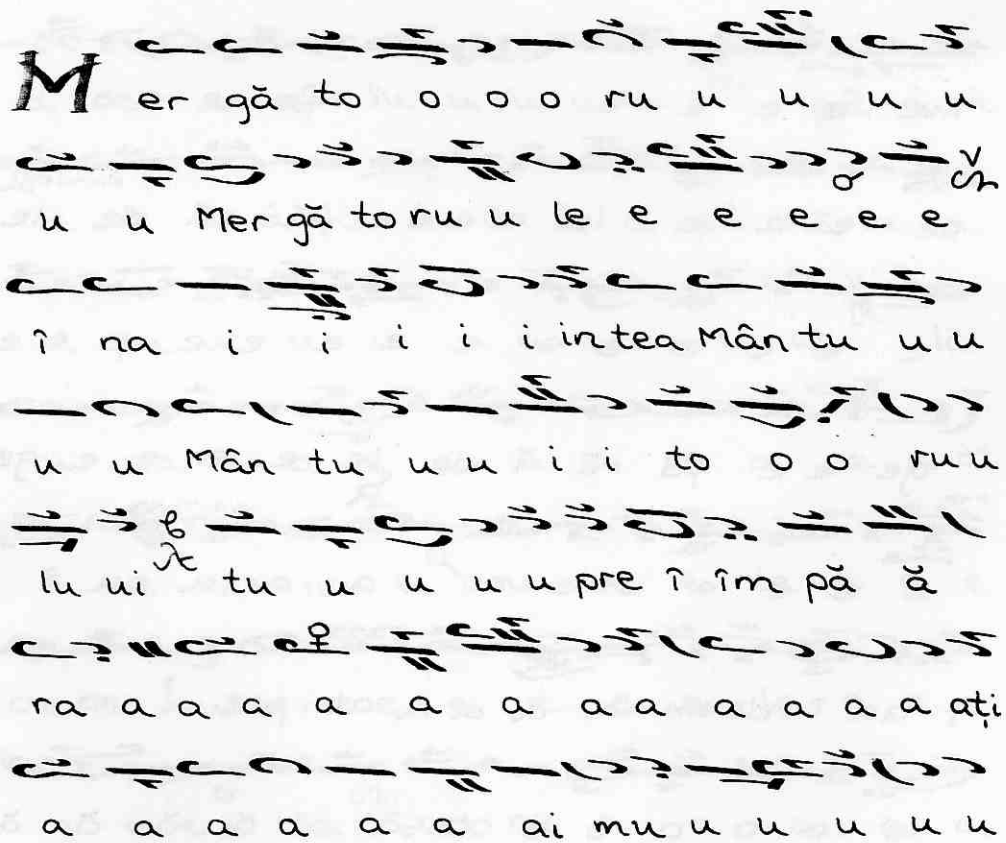 Mer gă to o o o ru u u u u
u u Mer gă to ru u le e e e e e
î na i i i i i in tea Mân tu u u
u u Mân tu u u i i to o o ru u
lu ui tu u u u u pre î îm pă ă
ra a a a a a a a a a a a a ați
a a a a a a ai mu u u u u u